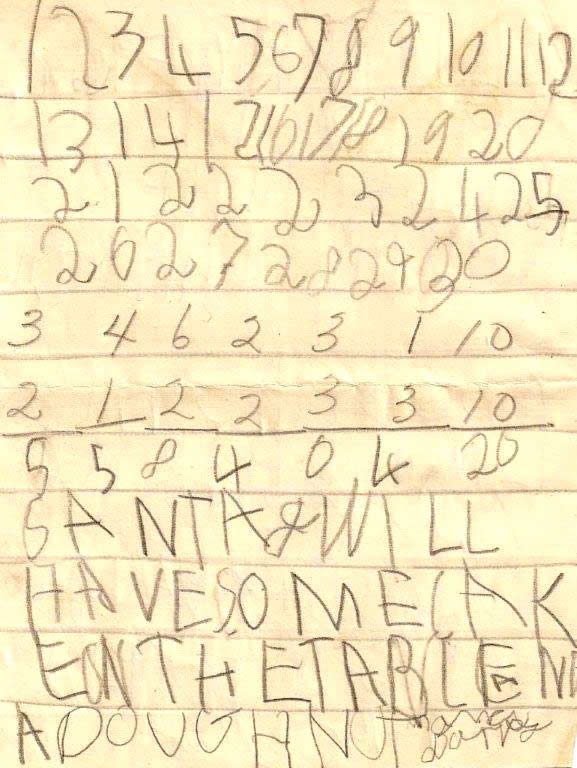 1 2 3 4 5 6 7 8 9 10 11 12
13 14 16 17 18 19 20
21 22 23 24 25
26 27 28 29 30
3 4 6 2 3 1 10
2 1 2 2 3 3 10
5 5 8 4 0 4 20
SANTA & WILL
HAVE SOME CAK
E ON THE TABLE AN
A DOUGHNUT